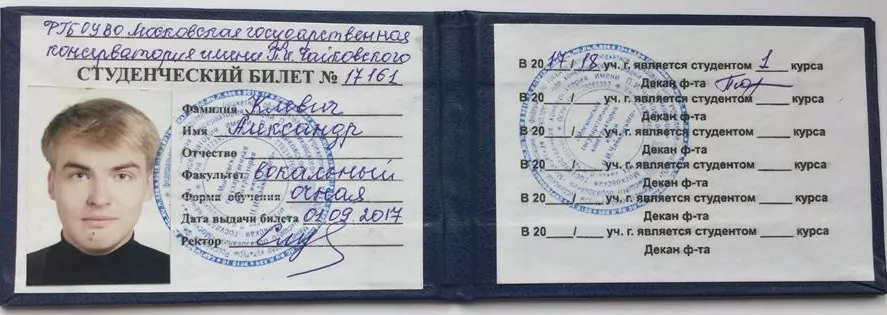 ФГБОУВО Московская государственная
консерватория имени П.И. Чайковского
СТУДЕНЧЕСКИЙ БИЛЕТ № 17161
Фамилия Клевич
Имя Александр
Отчество
Факультет вокальный
Форма обучения очная
Дата выдачи билета 01.09.2017
Ректор
В 2017/18 уч. г. является студентом 1 курса
Декан ф-та
В 20___/___ уч. г. является студентом ____ курса
Декан ф-та
В 20___/___ уч. г. является студентом ____ курса
Декан ф-та
В 20___/___ уч. г. является студентом ____ курса
Декан ф-та
В 20___/___ уч. г. является студентом ____ курса
Декан ф-та
В 20___/___ уч. г. является студентом ____ курса
Декан ф-та